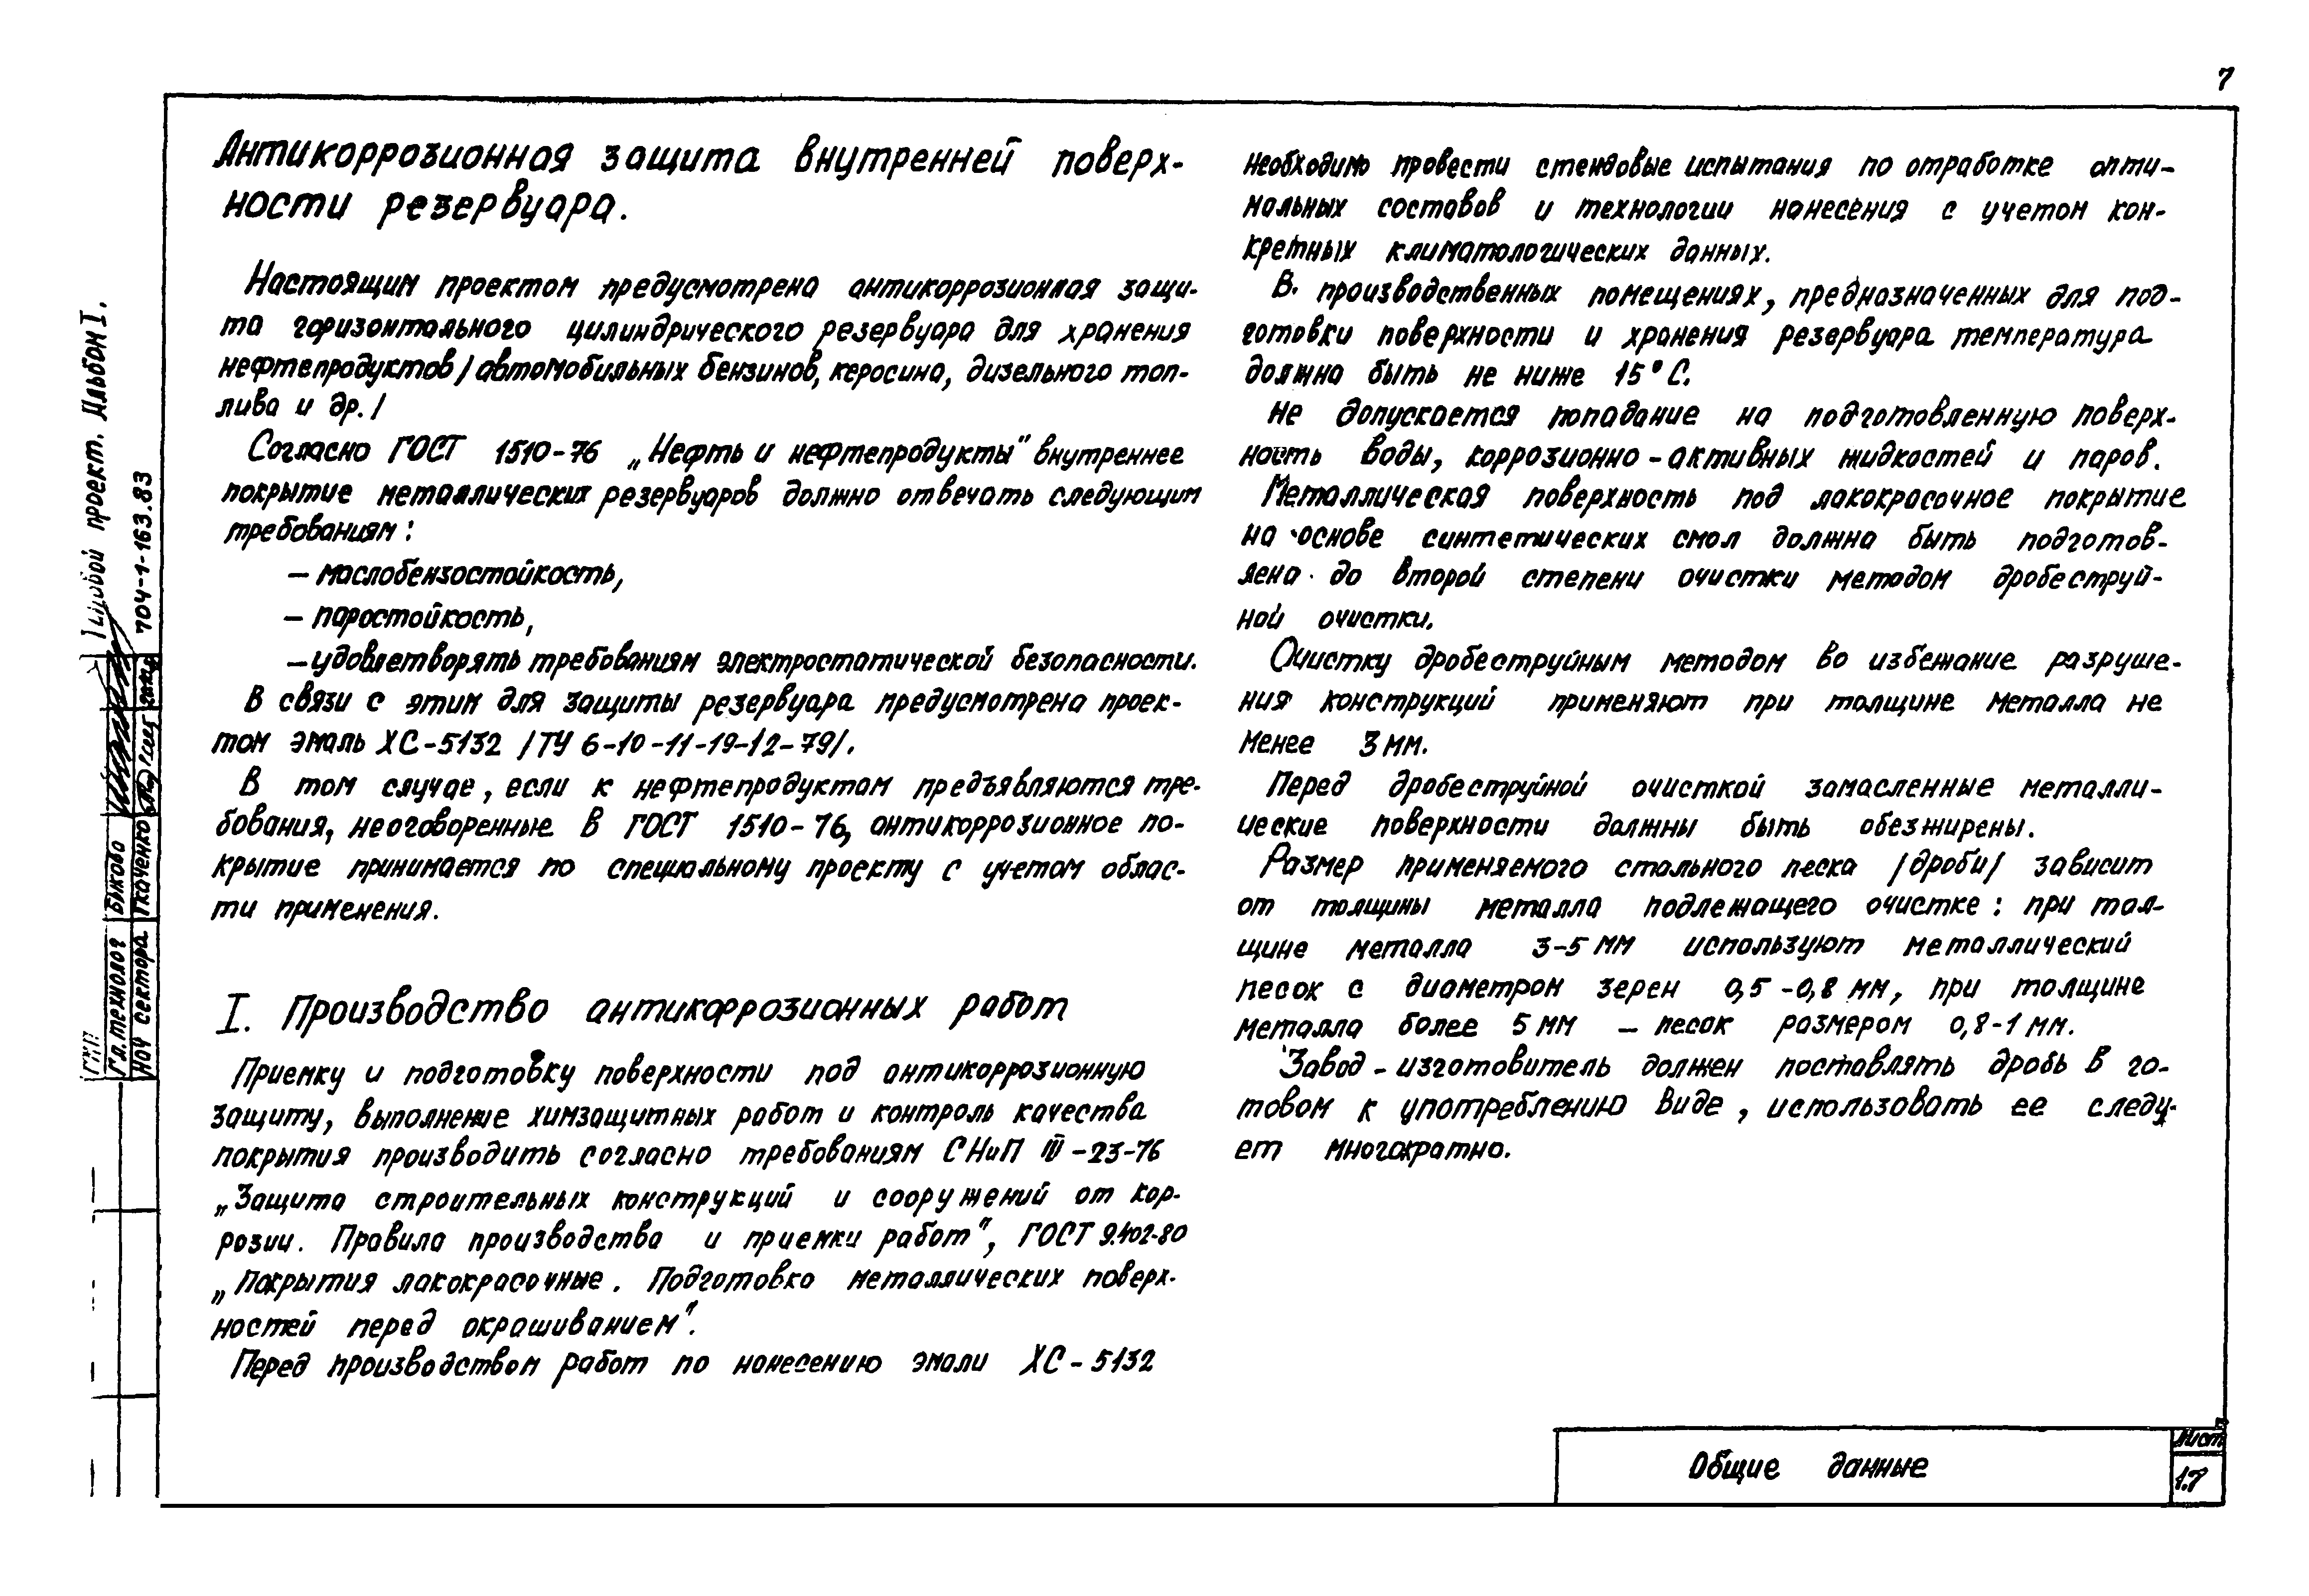 7
Антикоррозионная защита внутренней поверх-
ности резервуара.
Настоящим проектом предусмотрена антикоррозионная защи-
та горизонтального цилиндрического резервуара для хранения
нефтепродуктов /автомобильных бензинов, керосина, дизельного топ-
лива и др./
Согласно ГОСТ 1510-76 „Нефть и нефтепродукты" внутреннее
покрытие металлических резервуаров должно отвечать следующим
требованиям:
– маслобензостойкость,
– паростойкость,
– удовлетворять требованиям электростатической безопасности.
В связи с этим для защиты резервуара предусмотрена проек-
том эмаль ХС-5132 /ТУ 6-10-11-19-12-79/.
В том случае, если к нефтепродуктам предъявляются тре-
бования, неоговоренные в ГОСТ 1510-76, антикоррозионное по-
крытие принимается по специальному проекту с учетом облас-
ти применения.
I. Производство антикоррозионных работ
Приемку и подготовку поверхности под антикоррозионную
защиту, выполнение химзащитных работ и контроль качества
покрытия производить согласно требованиям СНиП III-23-76
„Защита строительных конструкций и сооружений от кор-
розии. Правила производства и приемки работ", ГОСТ 9.402-80
„Покрытия лакокрасочные. Подготовка металлических поверх-
ностей перед окрашиванием".
Перед производством работ по нанесению эмали ХС-5132
необходимо провести стендовые испытания по отработке опти-
мальных составов и технологии нанесения с учетом кон-
кретных климатологических данных.
В производственных помещениях, предназначенных для под-
готовки поверхности и хранения резервуара температура
должна быть не ниже 15°С.
Не допускается попадание на подготовленную поверх-
ность воды, коррозионно-активных жидкостей и паров.
Металлическая поверхность под лакокрасочное покрытие
на основе синтетических смол должна быть подготов-
лена до второй степени очистки методом дробеструй-
ной очистки.
Очистку дробеструйным методом во избежание разруше-
ния конструкций применяют при толщине металла не
менее 3 мм.
Перед дробеструйной очисткой замасленные металли-
ческие поверхности должны быть обезжирены.
Размер применяемого стального песка /дроби/ зависит
от толщины металла подлежащего очистке: при тол-
щине металла 3-5 мм используют металлический
песок с диаметром зерен 0,5-0,8 мм, при толщине
металла более 5 мм – песок размером 0,8-1 мм.
Завод-изготовитель должен поставлять дробь в го-
товом к употреблению виде, использовать ее следу-
ет многократно.
Общие данные
Лист
1.7
Типовой проект. Альбом I.
704-1-163.83
ГИП
Гл. технолог Быкова
Нач сектора Ткаченко